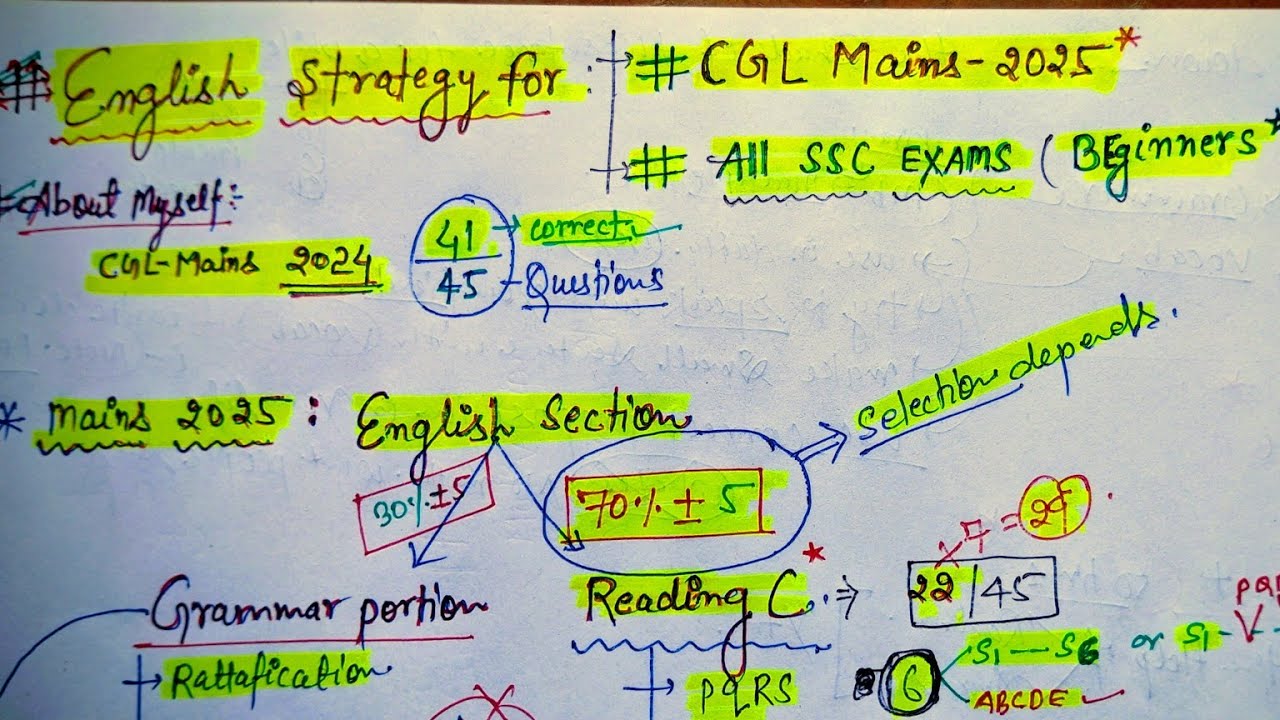 # English Strategy for : # CGL Mains-2025*
# All SSC EXAMS (BEginners*
About Myself:-
CGL-Mains 2024 41 correct
45 Questions
Selection depends.
* Mains 2025 : English Section
30% ± 5 70% ± 5
+7 = 29
Grammar portion Reading C. ⇒ 22/45
S1 — S6 or S1 -
Rattafication PQRS 6 ABCDE